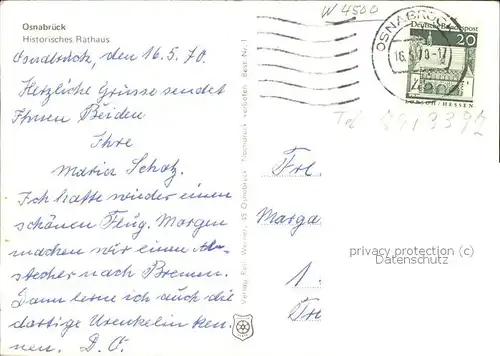 Osnabrück
Historisches Rathaus
Osnabrück, den 16.5.70.
Herzliche Grüsse sendet
Ihnen Beiden
Ihre
Maria Schatz.
Ich hatte wieder einen
schönen Flug. Morgen
machen wir einen Ab-
stecher nach Bremen.
Dann lerne ich auch die
dortige Urenkelin ken-
nen. D. O.
Verlag Rolf Werner, 45 Osnabrück Nachdruck verboten Best. Nr. 1
W 4500
OSNABRÜCK
16.5.70-17
Deutsche Bundespost
20
LORSCH/HESSEN
Tel. 8913392
Frl.
Marga
1.
privacy protection (c)
Datenschutz